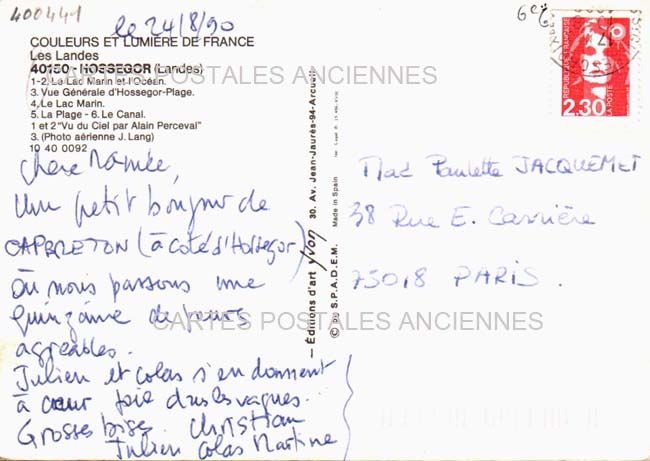 400441
le 24/8/90
COULEURS ET LUMIÈRE DE FRANCE
Les Landes
40150 - HOSSEGOR (Landes)
1-2. Le Lac Marin et l'Océan.
3. Vue Générale d'Hossegor-Plage.
4. Le Lac Marin.
5. La Plage - 6. Le Canal.
1 et 2 "Vu du Ciel par Alain Perceval"
3. (Photo aérienne J. Lang)
10 40 0092
CARTES POSTALES ANCIENNES
Chère Mamée,
Un petit bonjour de
CAPBRETON (à coté d'Hossegor)
où nous passons une
quinzaine de jours
agréables.
Julien et Colas s'en donnent
à cœur joie dans les vagues.
Grosses bises. Christian
Julien Colas Martine
— Éditions d'art yvon 30, Av. Jean-Jaurès-94-Arcueil
© S.P.A.D.E.M. Made in Spain
6e
RÉPUBLIQUE FRANÇAISE
2.30
LA POSTE
Mad Paulette JACQUEMET
38 Rue E. Carrière
75018 PARIS.
CARTES POSTALES ANCIENNES